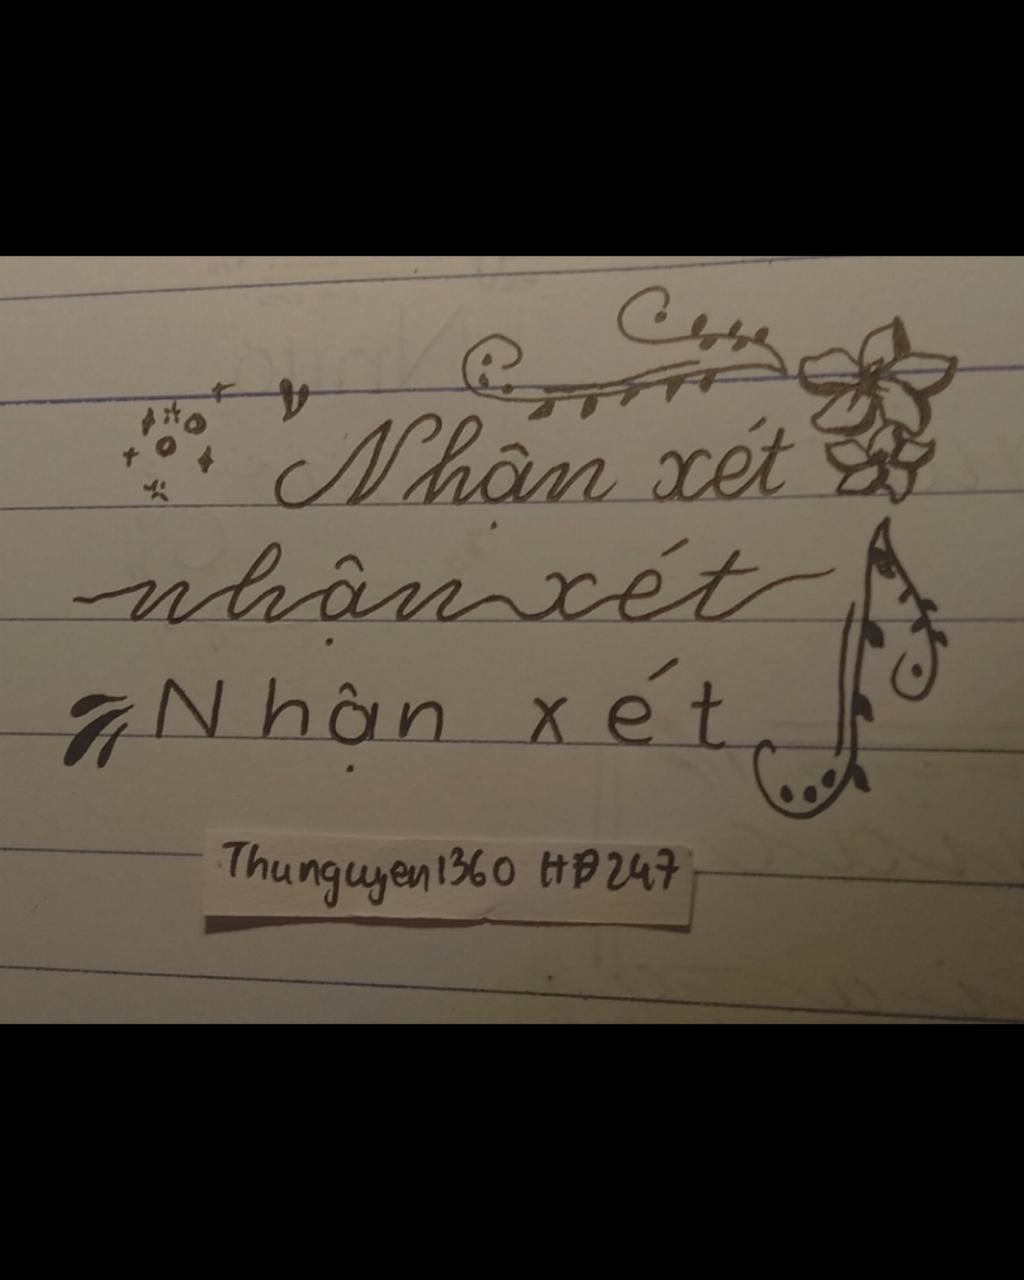 Nhận xét
nhận xét
Nhận xét
Thunguyen1360 HĐ247